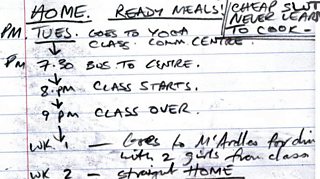 HOME. READY MEALS! CHEAP SLUT
NEVER LEARN
PM TUES. GOES TO YOGA TO COOK -
CLASS. COMM CENTRE.
PM 7.30 BUS TO CENTRE.
8.PM CLASS STARTS.
9 PM CLASS OVER.
WK 1 — Goes to M'Ardles for din
with 2 girls from class
WK 2 - straight HOME